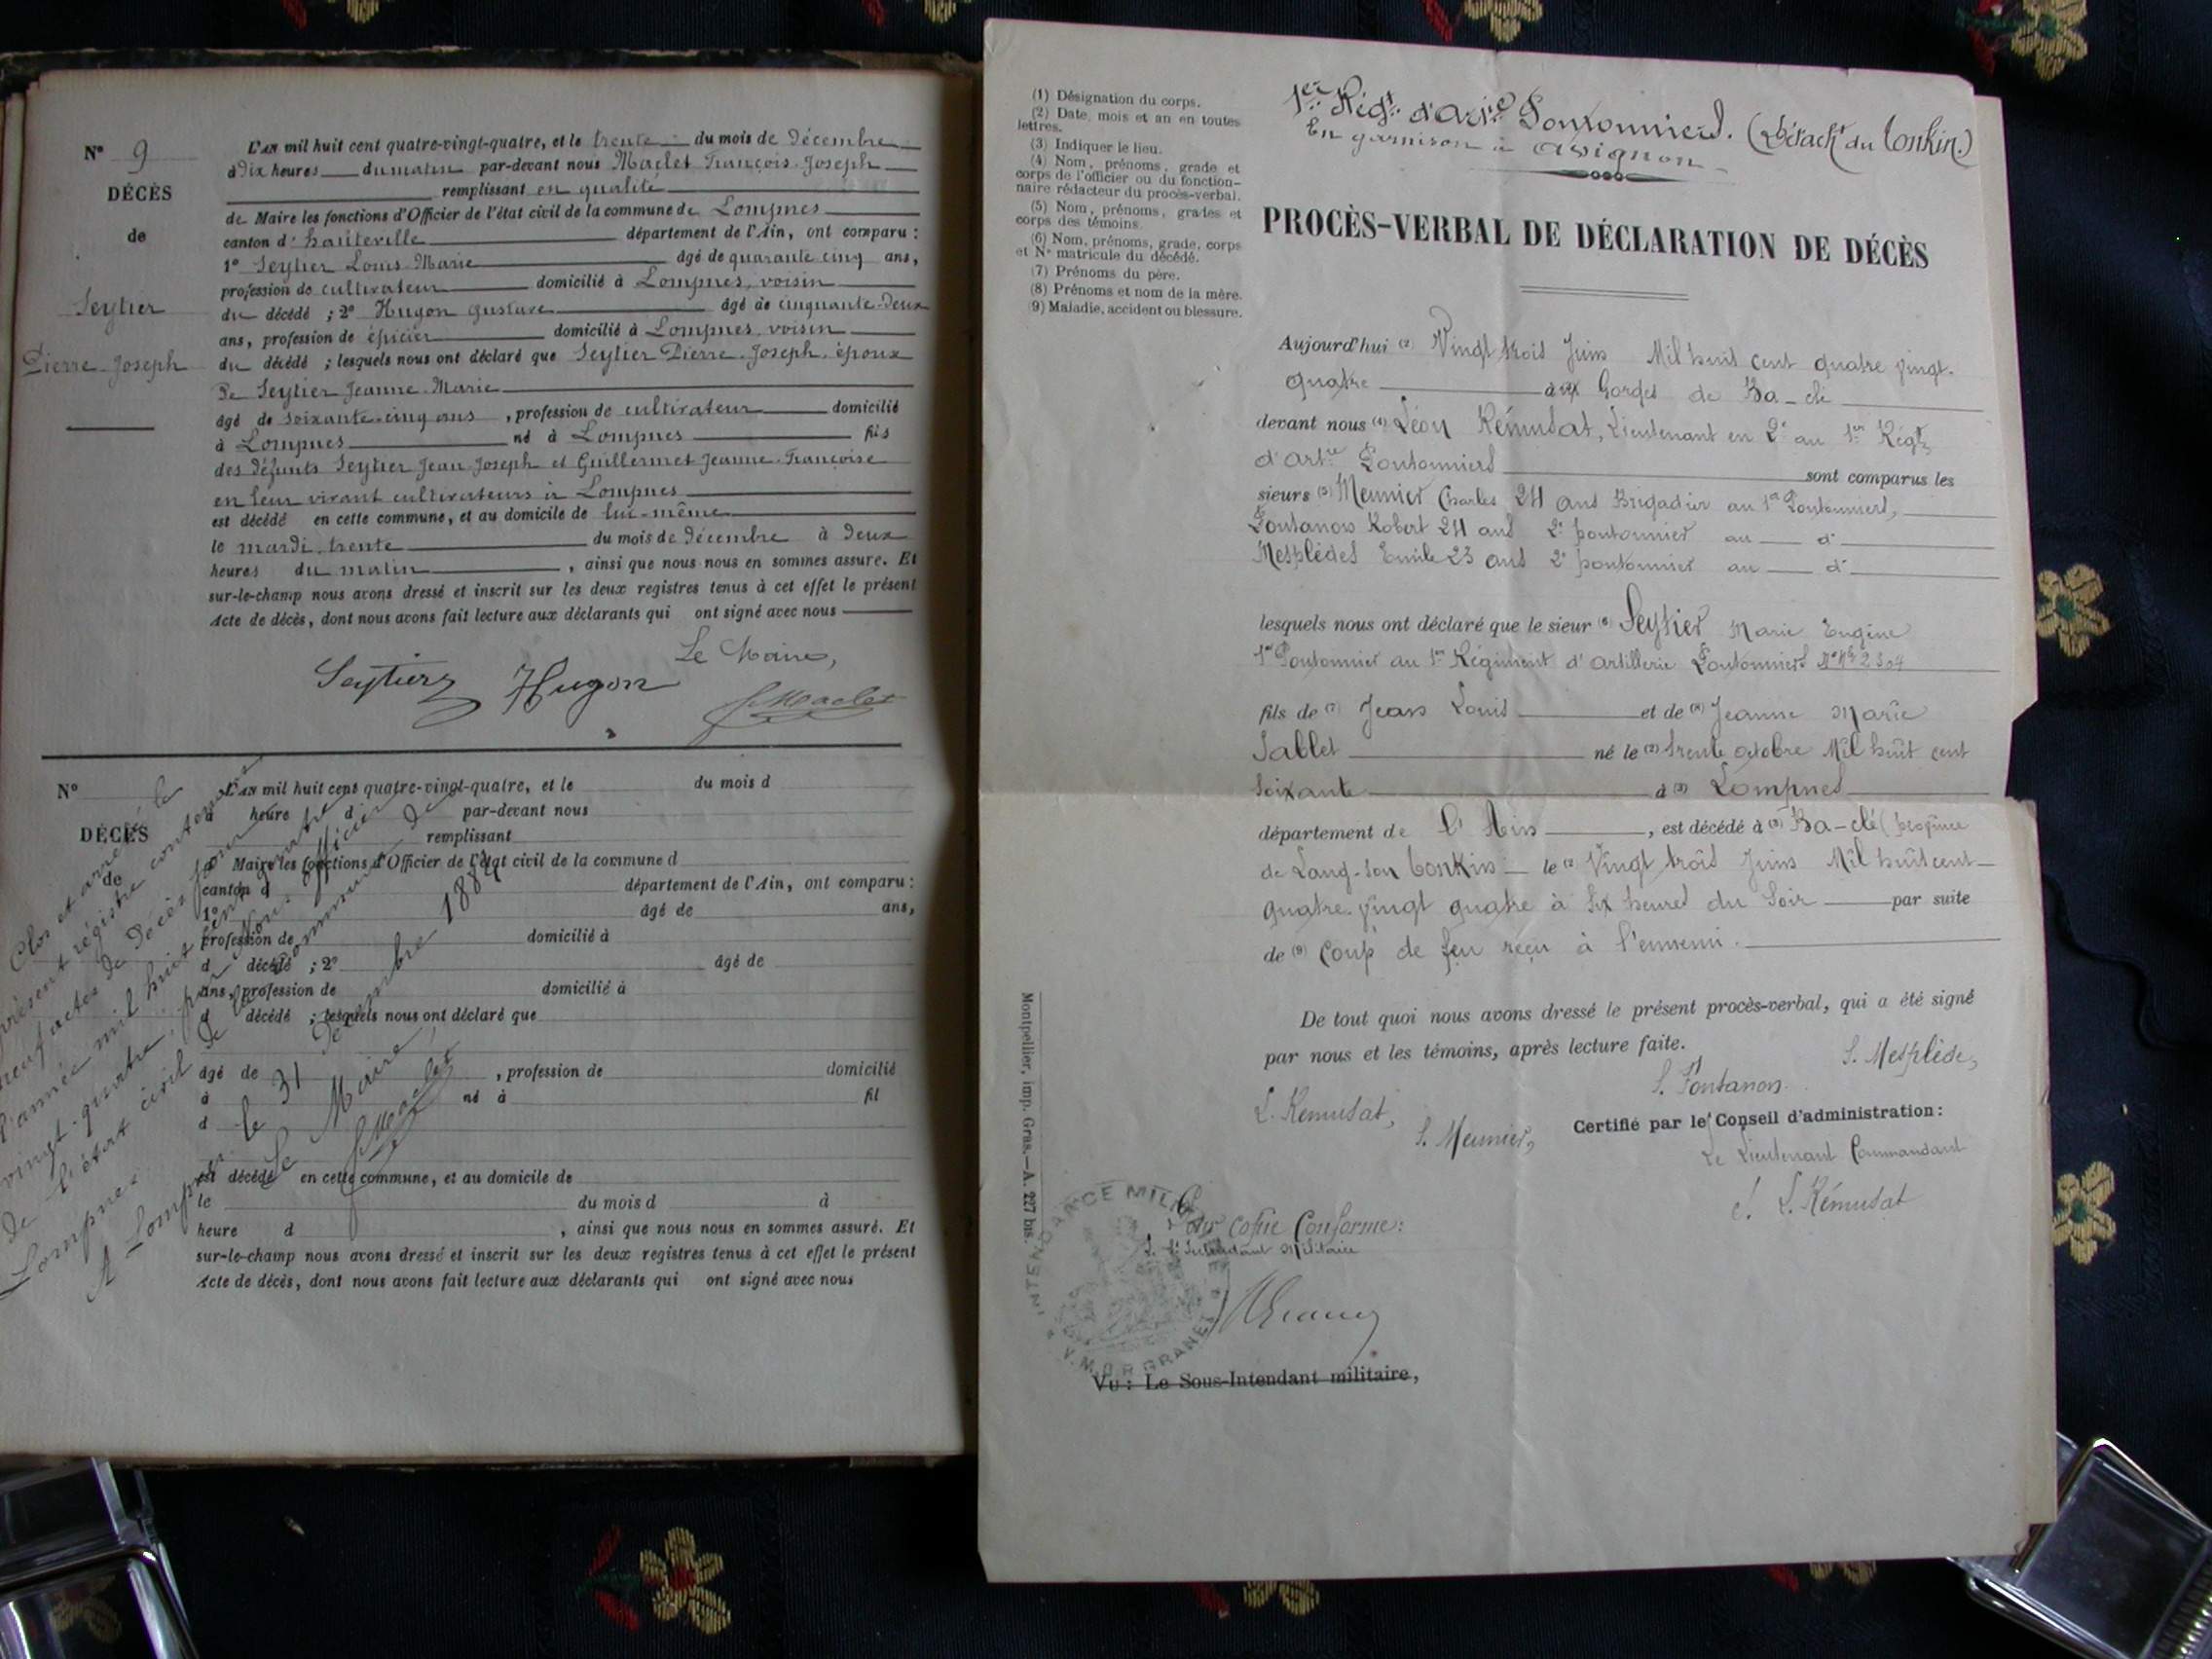 N° 9
DÉCÈS
de
Seytier
Pierre-Joseph
L'AN mil huit cent quatre-vingt-quatre, et le trente du mois de Décembre
à Dix heures du matin par-devant nous Maclet François-Joseph
remplissant en qualité
de Maire les fonctions d'Officier de l'état civil de la commune de Lompnes
canton d'hauteville département de l'Ain, ont comparu :
1° Seytier Louis-Marie âgé de quarante cinq ans,
profession de cultivateur domicilié à Lompnes, voisin
du décédé ; 2° Hugon Gustave âgé de cinquante-deux
ans, profession de épicier domicilié à Lompnes, voisin
du décédé ; lesquels nous ont déclaré que Seytier Pierre-Joseph, époux
De Seytier Jeanne-Marie
âgé de soixante-cinq ans, profession de cultivateur domicilié
à Lompnes né à Lompnes fils
des défunts Seytier Jean-Joseph et Guillermet Jeanne-Françoise
en leur vivant cultivateurs à Lompnes
est décédé en cette commune, et au domicile de lui-même
le mardi, trente du mois de décembre à Deux
heures du matin, ainsi que nous nous en sommes assuré. Et
sur-le-champ nous avons dressé et inscrit sur les deux registres tenus à cet effet le présent
Acte de décès, dont nous avons fait lecture aux déclarants qui ont signé avec nous
Le Maire,
Seytier Hugon Maclet
N°
DÉCÈS
de
L'AN mil huit cent quatre-vingt-quatre, et le du mois d
à heure d par-devant nous
remplissant
d Maire les fonctions d'Officier de l'état civil de la commune d
canton d département de l'Ain, ont comparu :
1° âgé de ans,
profession de domicilié à
d décédé ; 2° âgé de
ans, profession de domicilié à
d décédé ; lesquels nous ont déclaré que
âgé de , profession de domicilié
à né à fil
d
est décédé en cette commune, et au domicile de
le du mois d à
heure d , ainsi que nous nous en sommes assuré. Et
sur-le-champ nous avons dressé et inscrit sur les deux registres tenus à cet effet le présent
Acte de décès, dont nous avons fait lecture aux déclarants qui ont signé avec nous
Clos et arrêté le
présent registre contenant
neuf actes de Décès pour
l'année mil huit cent quatre
vingt-quatre, par Nous Officier
de l'état civil de la commune de
Lompnes
A Lompnes le 31 Décembre 1884
Le Maire,
Maclet
(1) Désignation du corps.
(2) Date, mois et an en toutes
lettres.
(3) Indiquer le lieu.
(4) Nom, prénoms, grade et
corps de l'officier ou du fonction-
naire rédacteur du procès-verbal.
(5) Nom, prénoms, grades et
corps des témoins.
(6) Nom, prénoms, grade, corps
et N° matricule du décédé.
(7) Prénoms du père.
(8) Prénoms et nom de la mère.
(9) Maladie, accident ou blessure.
1er Régt d'Artie Pontonniers. (Détacht du Tonkin.)
En garnison à Avignon
PROCÈS-VERBAL DE DÉCLARATION DE DÉCÈS
Aujourd'hui (2) Vingt trois Juin Mil huit cent quatre vingt-
quatre à (3) Gorges de Ba-clé
devant nous (4) Léon Rémusat, Lieutenant en 2e au 1er Régt
d'Artie Pontonniers sont comparus les
sieurs (5) Meunier Charles 24 ans Brigadier au 1er Pontonniers,
Fontanon Robert 24 ans 2e pontonnier au d°
Mesplèdes Emile 23 ans 2e pontonnier au d°
lesquels nous ont déclaré que le sieur (6) Seytier Marie Eugène
1er Pontonnier au 1er Régiment d'artillerie Pontonniers N° Mle 2304
fils de (7) Jean Louis et de (8) Jeanne Marie
Sablet né le (2) trente octobre Mil huit cent
soixante à (3) Lompnes
département de l'Ain, est décédé à (3) Ba-clé (province
de Lang-son Tonkin le (2) Vingt trois Juin Mil huit cent
quatre-vingt quatre à six heures du soir par suite
de (9) Coup de feu reçu à l'ennemi.
De tout quoi nous avons dressé le présent procès-verbal, qui a été signé
par nous et les témoins, après lecture faite.
S. Mesplède,
S. Fontanon.
L. Remusat,
S. Meunier,
Certifié par le Conseil d'administration :
Le Lieutenant Commandant
S. L. Rémusat
Pour Copie Conforme :
Intendant Militaire
INTENDANCE MILITAIRE
Vu : Le Sous-Intendant militaire,
Montpellier, imp. Gras.—A. 227 bis.